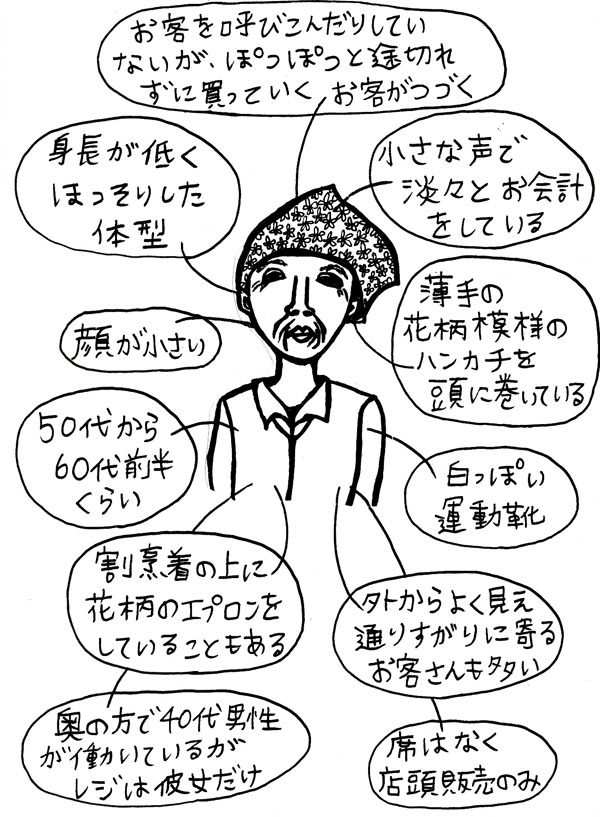 お客を呼びこんだりしてい
ないが、ぽつぽつと途切れ
ずに買っていくお客がつづく
身長が低く
ほっそりした
体型
小さな声で
淡々とお会計
をしている
顔が小さい
薄手の
花柄模様の
ハンカチを
頭に巻いている
50代から
60代前半
くらい
白っぽい
運動靴
割烹着の上に
花柄のエプロンを
していることもある
外からよく見え
通りすがりに寄る
お客さんも多い
奥の方で40代男性
が働いているが
レジは彼女だけ
席はなく
店頭販売のみ